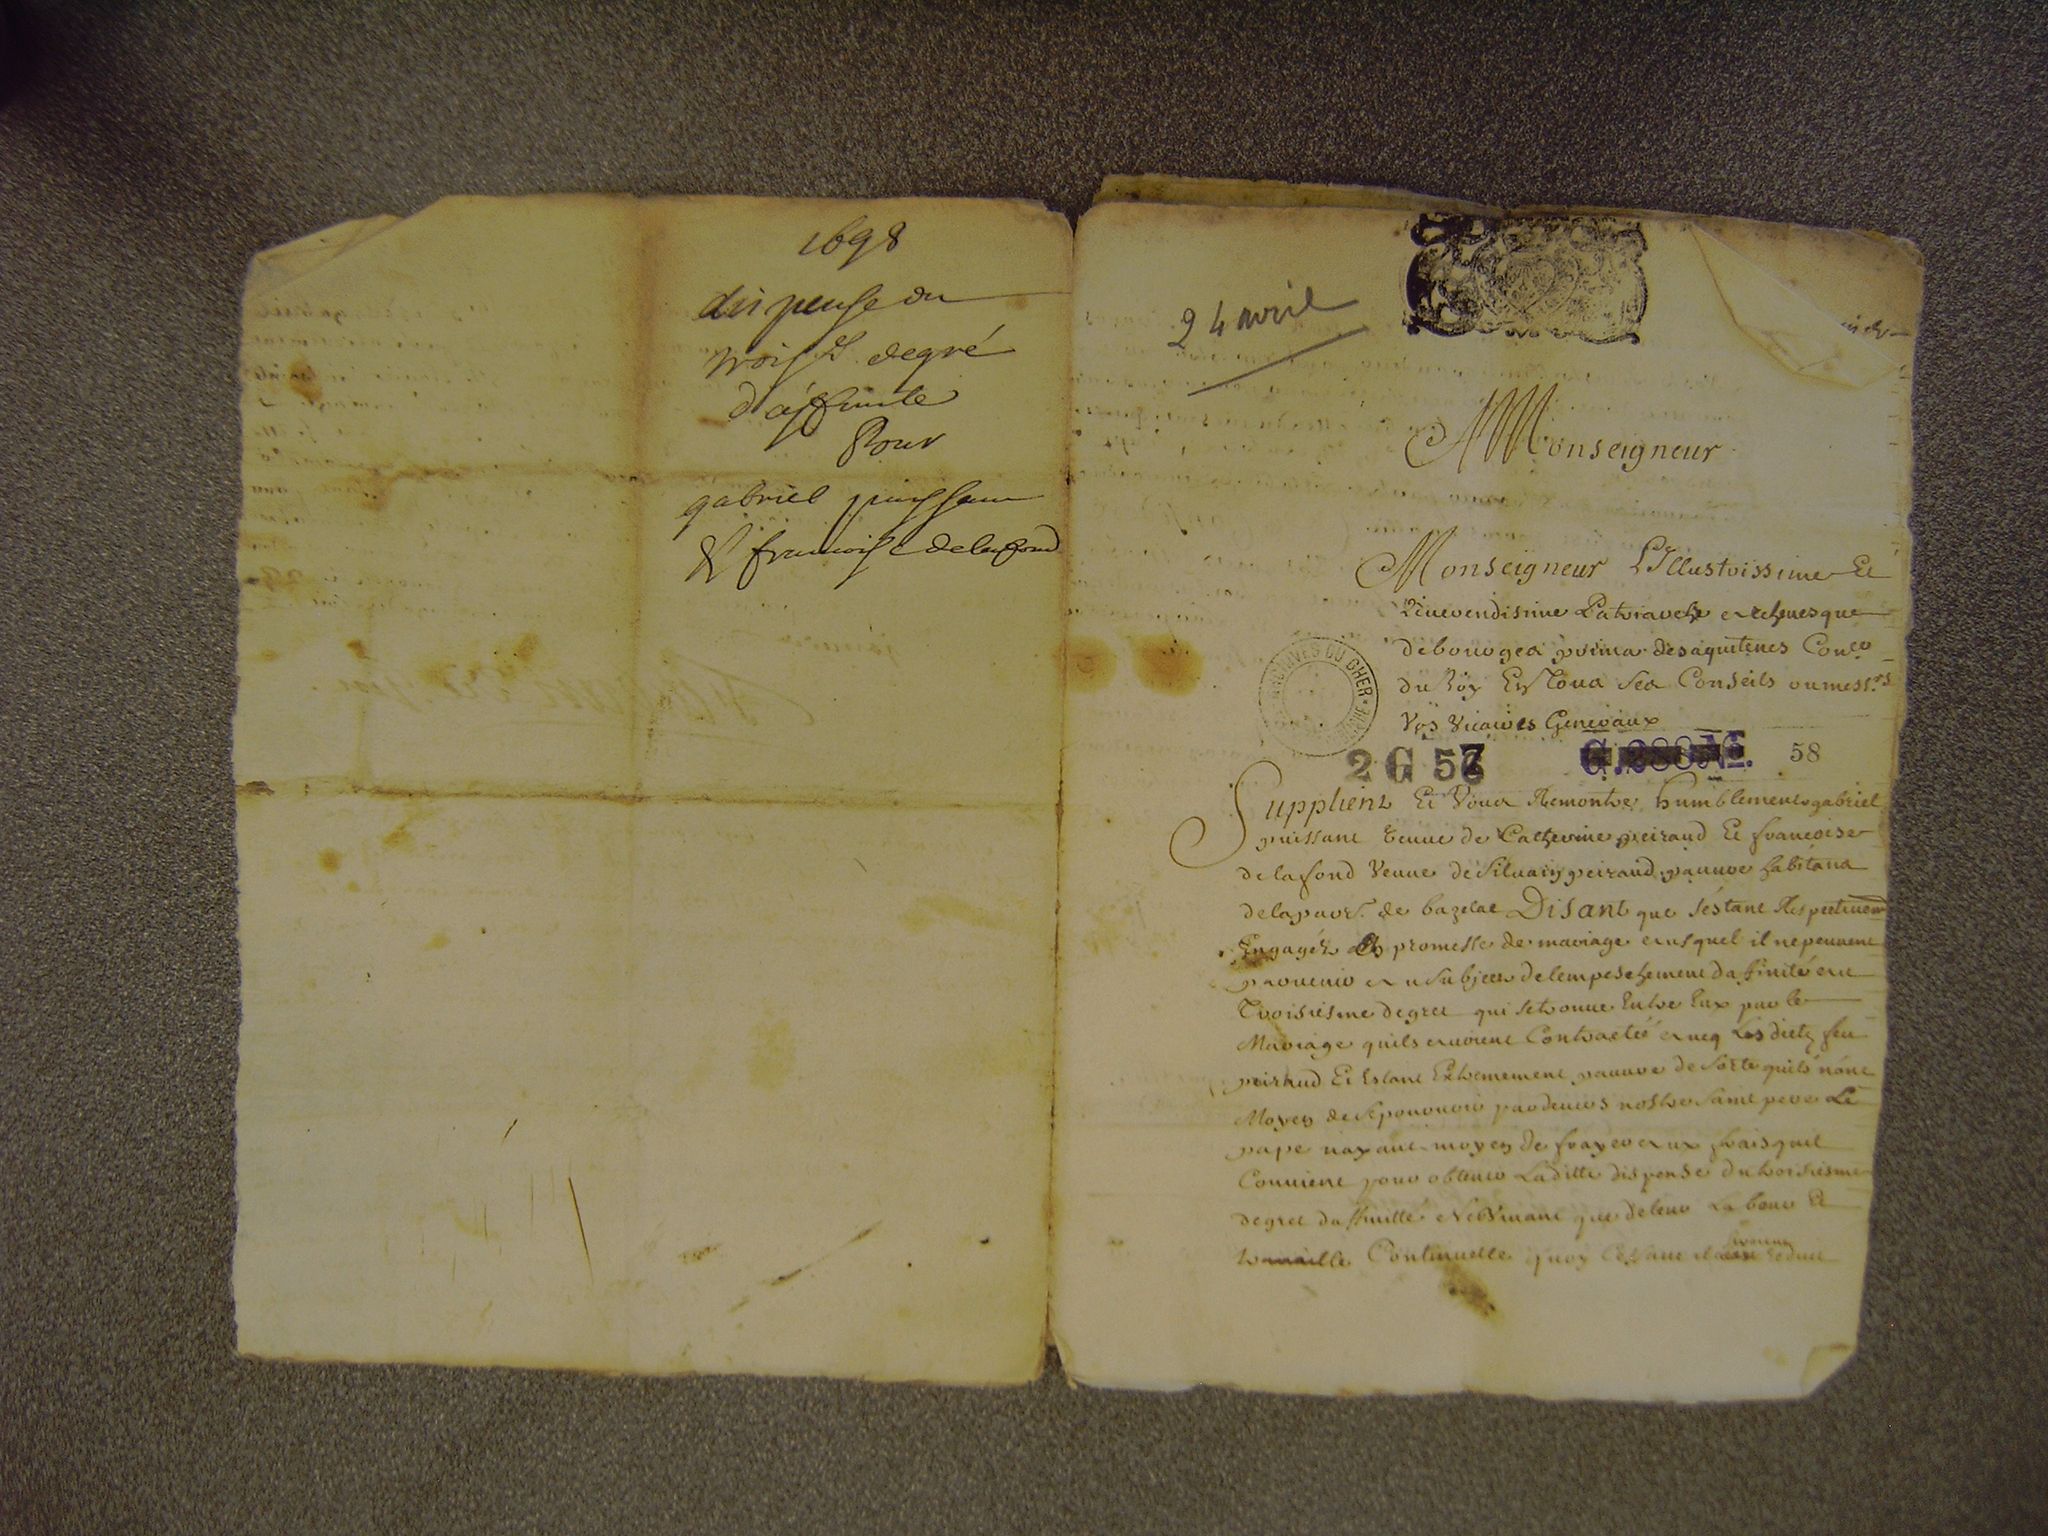 1698
dispense du
trois.e degré
d'affinite
Pour
gabriel puissant
& francoise delafond
24 avril
A Monseigneur
Monseigneur L'Illustrissime Et
Reverendisime Patriarche archevesque
de bourges prima des aquitenes Con.er
du Roy En Tous ses Conseils ou mess.rs
Vos Vicaires Generaux
ARCHIVES DU CHER
2 G 57
58
Supplient Et Vous Remontre humblement gabriel
puissant veuue de Catherine peiraud Et francoise
de lafond Veuue de Siluain peiraud pauure habitans
de la parr. de bazelat Disant que s'éstant Respectiuem
Engagéz En promesse de mariage ausquel il ne peuuent
paruenir au subject de lempeschement dafinité au
Troisiesme degret qui se trouue Entre Eux par le
Mariage quils auoient Contractéé aueq Les dictz feu
peiraud Et Estant Extremement pauure de Sorte quils nont
Moyen de se pouruoir par deuers nostre Saint pere Le
pape nayant moyen de frayer aux frais quil
Conuient pour obtenir Laditte dispense du troisiesme
degret daffinitté ne Viuant que de leur Labeur Et
trauaille Continuelle quoy Cessant reduit